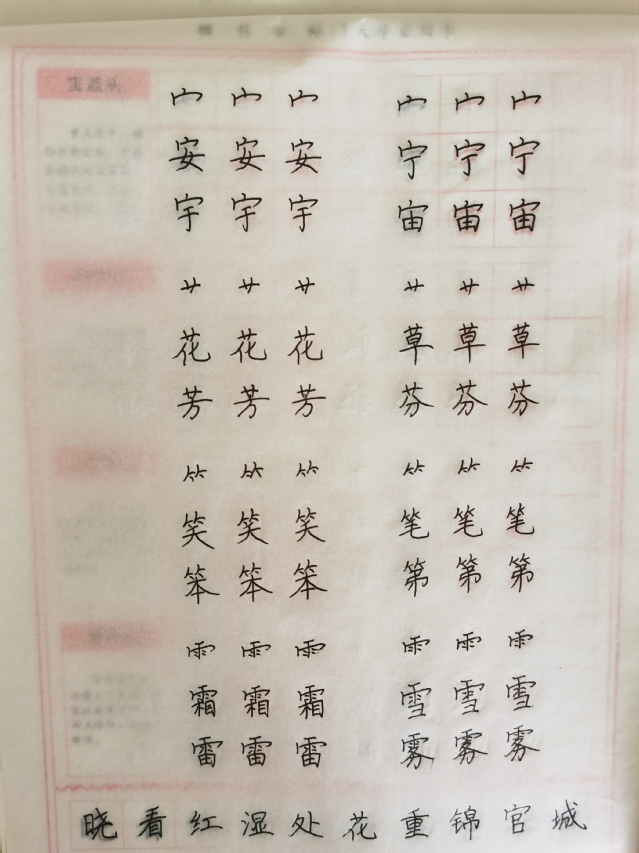 宀 宀 宀 宀 宀 宀
安 安 安 宁 宁 宁
宇 宇 宇 宙 宙 宙
艹 艹 艹 艹 艹 艹
花 花 花 草 草 草
芳 芳 芳 芬 芬 芬
⺮ ⺮ ⺮ ⺮ ⺮ ⺮
笑 笑 笑 笔 笔 笔
笨 笨 笨 第 第 第
⻗ ⻗ ⻗ ⻗ ⻗ ⻗
霜 霜 霜 雪 雪 雪
雷 雷 雷 雾 雾 雾
晓 看 红 湿 处 花 重 锦 官 城